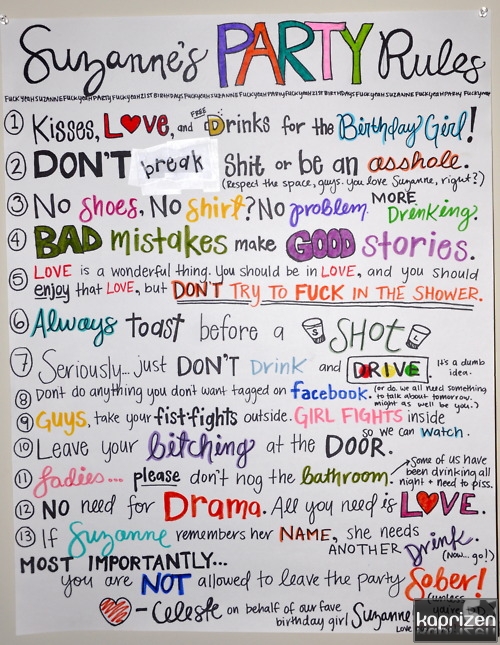 Suzanne's PARTY Rules
FUCK YEAH SUZANNE FUCK YEAH PARTY FUCK YEAH 21ST BIRTHDAYS FUCK YEAH SUZANNE FUCK YEAH PARTY FUCK YEAH 21ST BIRTHDAYS FUCK YEAH SUZANNE FUCK YEAH PARTY FUCK YEAH
FREE
① Kisses, LOVE, and Drinks for the Birthday Girl!
② DON'T break Shit or be an asshole.
(Respect the space, guys. you love Suzanne, right?)
③ No shoes, No shirt? No problem. MORE Drinking.
④ BAD mistakes make GOOD stories.
⑤ LOVE is a wonderful thing. You should be in LOVE, and you should
enjoy that LOVE, but DON'T TRY TO FUCK IN THE SHOWER.
⑥ Always toast before a SHOT
⑦ Seriously... just DON'T Drink and DRIVE. It's a dumb idea.
⑧ Dont do anything you dont want tagged on facebook. (or do. we all need something
to talk about tomorrow.
might as well be you.)
⑨ Guys, take your fist-fights outside. GIRL FIGHTS inside
so we can watch.
⑩ Leave your bitching at the DOOR.
⑪ Ladies... please don't hog the bathroom. Some of us have
been drinking all
night + need to piss.
⑫ NO need for Drama. All you need is LOVE.
⑬ If Suzanne remembers her NAME, she needs
ANOTHER Drink.
(Now... go!)
MOST IMPORTANTLY...
you are NOT allowed to leave the party Sober!
(unless
- Celeste on behalf of our fave
birthday girl Suzanne
kaprizen